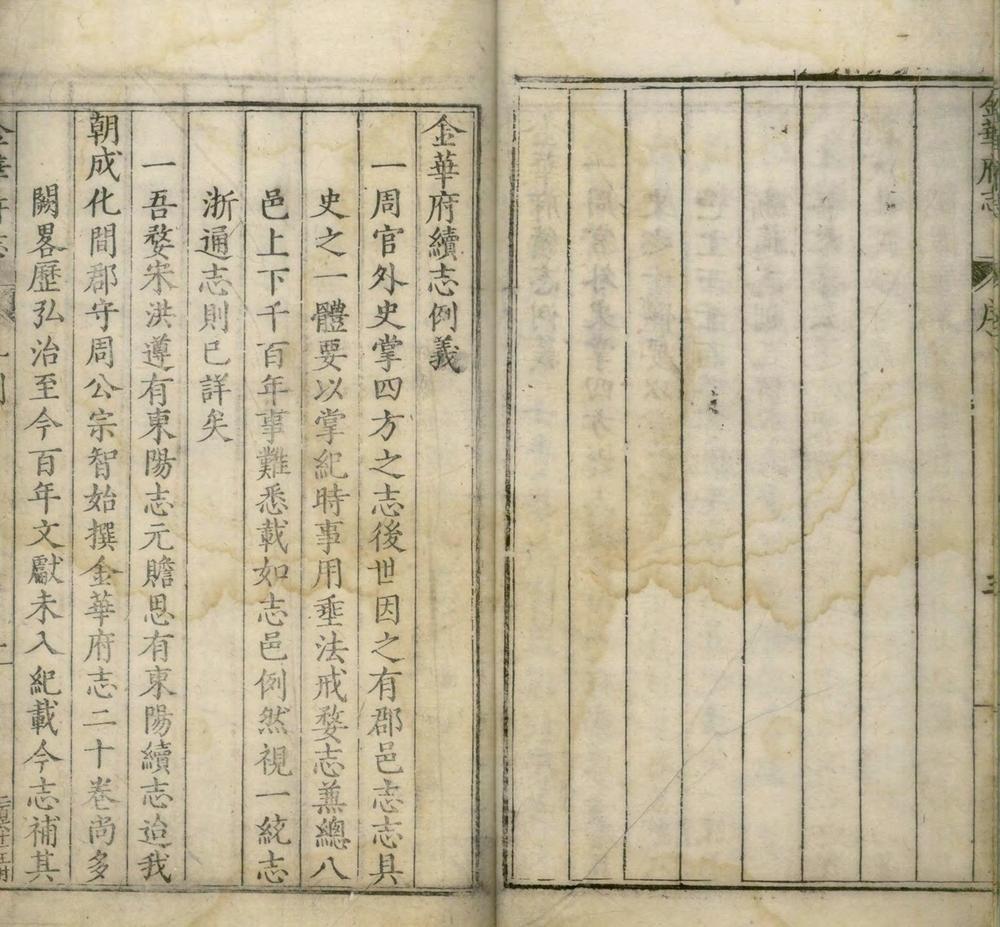 金華府志
序
三
金華府續志例義
一周官外史掌四方之志後世因之有郡邑志志具
史之一體要以掌紀時事用垂法戒婺志蕪總八
邑上下千百年事難悉載如志邑例然視一統志
浙通志則已詳矣
一吾婺宋洪遵有東陽志元贍思有東陽續志迨我
朝成化間郡守周公宗智始撰金華府志二十卷尚多
闕畧歷弘治至今百年文獻未入紀載今志補其